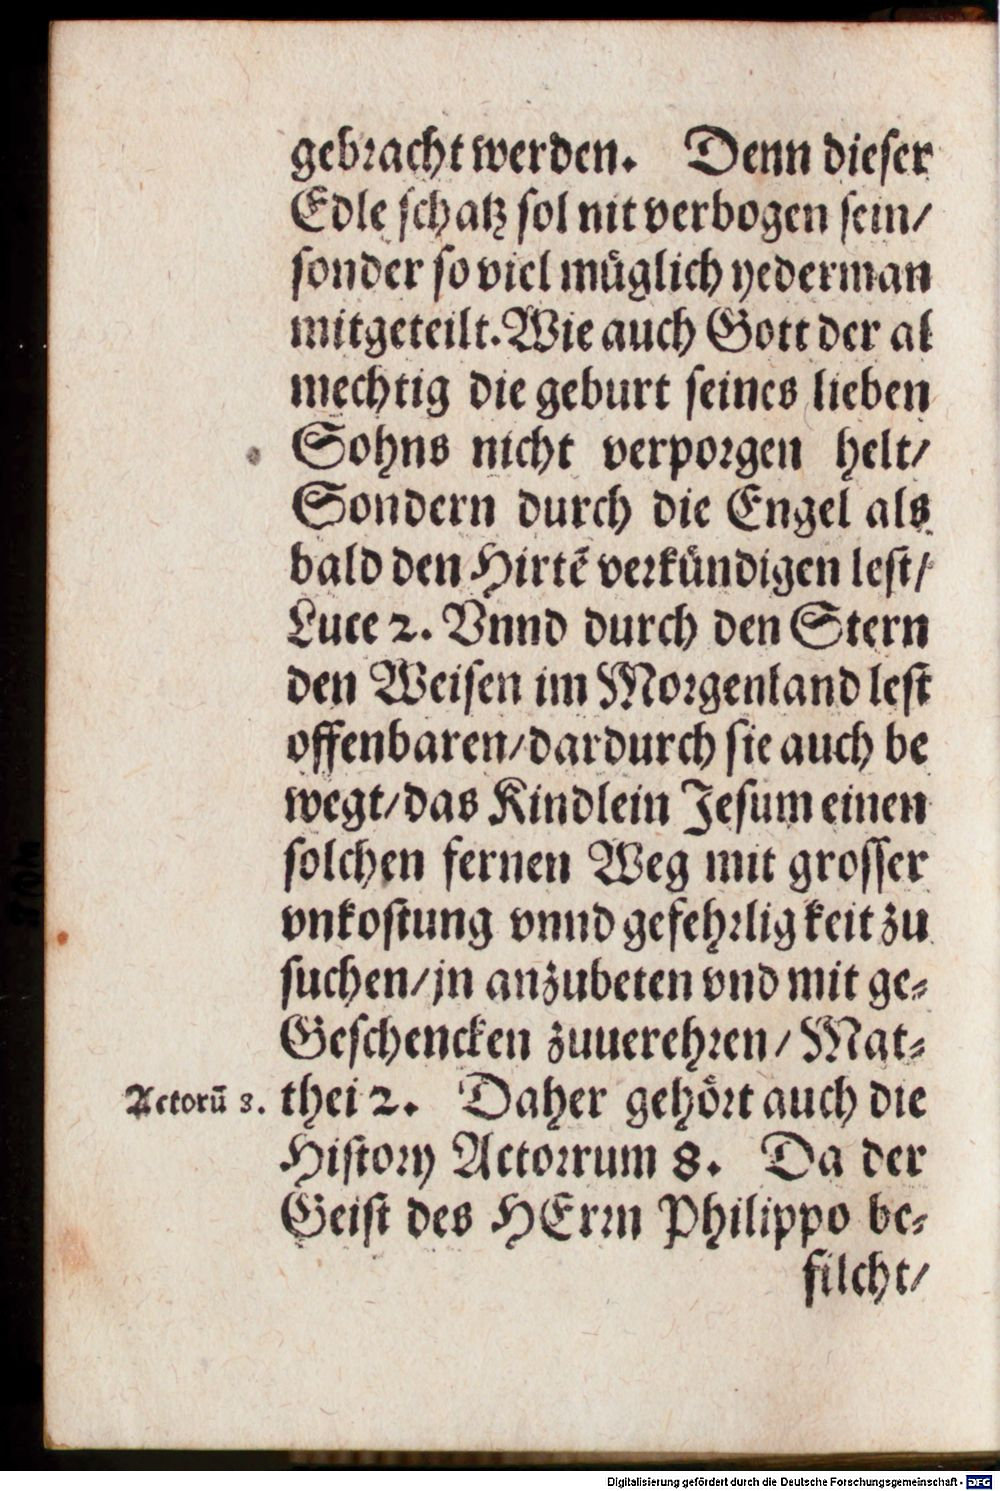 gebracht werden. Denn dieser
Edle schatz sol nit verbogen sein/
sonder so viel müglich yederman
mitgeteilt. Wie auch Gott der al
mechtig die geburt seines lieben
Sohns nicht verporgen helt/
Sondern durch die Engel als
bald den Hirtē verkündigen lest/
Luce 2. Vnnd durch den Stern
den Weisen im Morgenland lest
offenbaren/dardurch sie auch be
wegt/das Kindlein Jesum einen
solchen fernen Weg mit grosser
vnkostung vnnd gefehrligkeit zu
suchen/jn anzubeten vnd mit ge-
Geschencken zuuerehren/ Mat-
Actorū 8. thei 2. Daher gehört auch die
History Actorrum 8. Da der
Geist des HErrn Philippo be-
filcht/
Digitalisierung gefördert durch die Deutsche Forschungsgemeinschaft - DFG